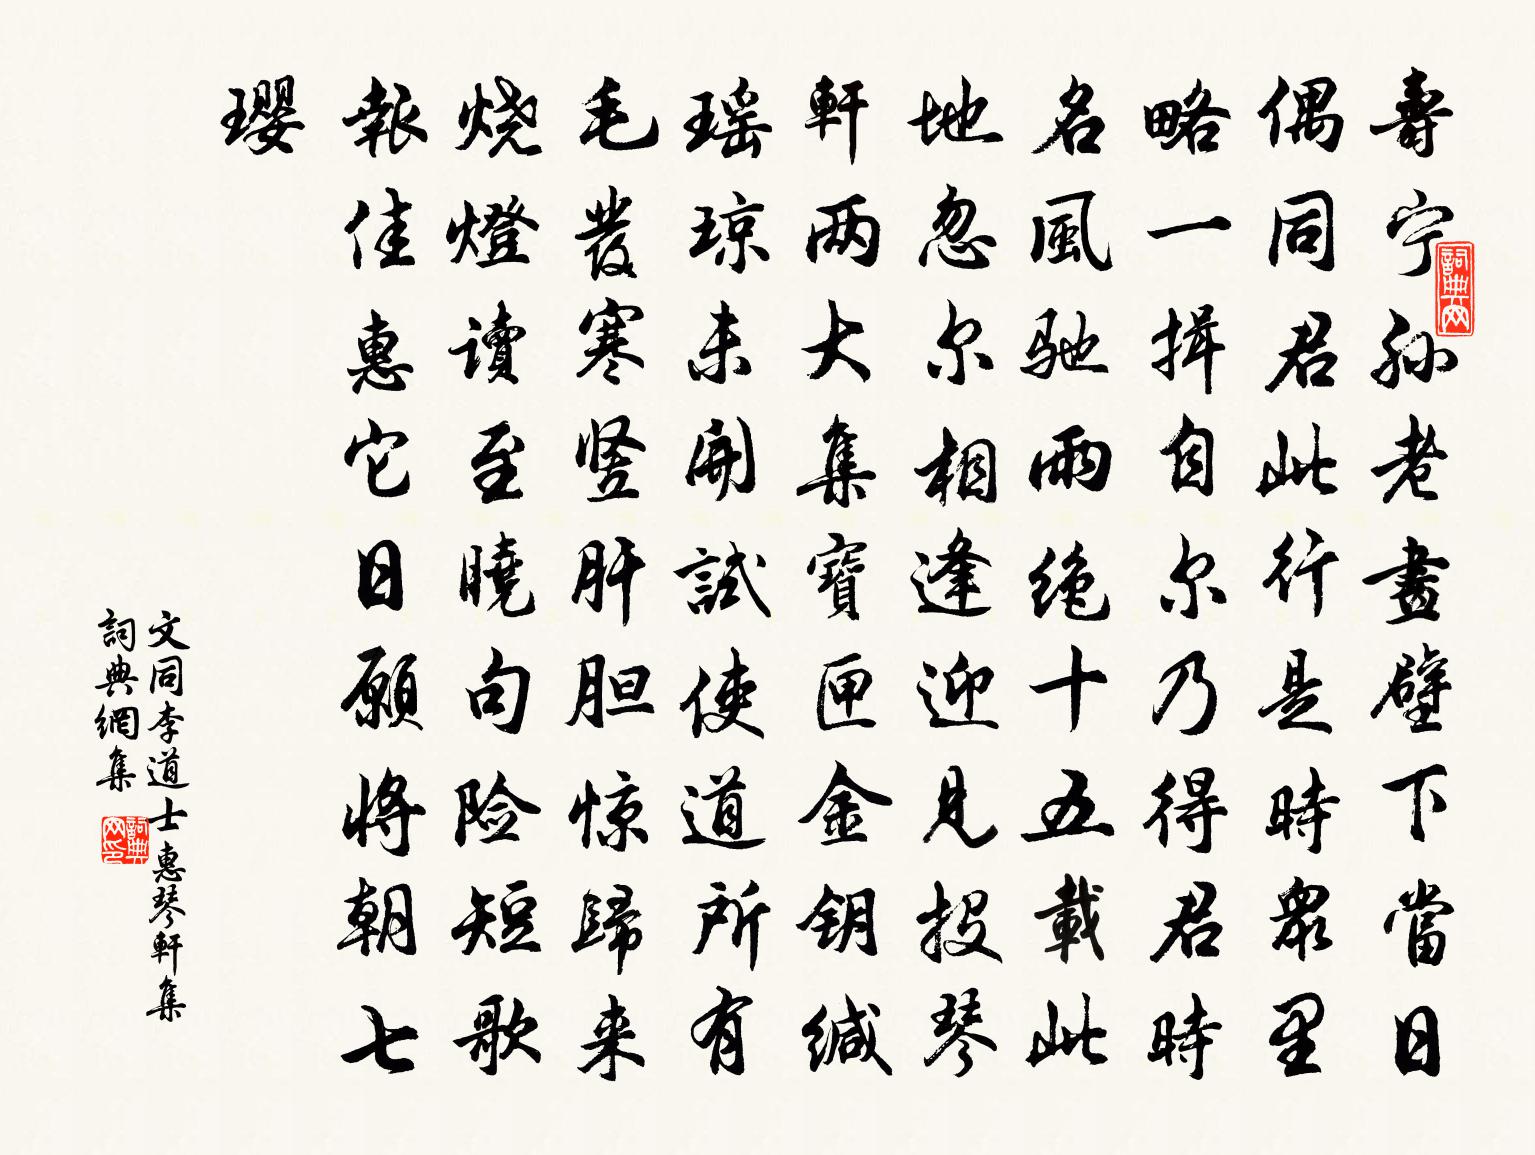 壽宁孙老畫壁下當日
偶同君此行是時眾里
略一揖自尔乃得君時
名風驰雨绝十五載此
地忽尔相逢迎見投琴
軒两大集寶匣金钥缄
瑶琼未開試使道所有
毛發寒竖肝胆惊歸来
烧燈讀至曉句险短歌
報佳惠它日願将朝七
璎
文同李道士惠琴軒集
詞典網集
詞典网
詞典网印